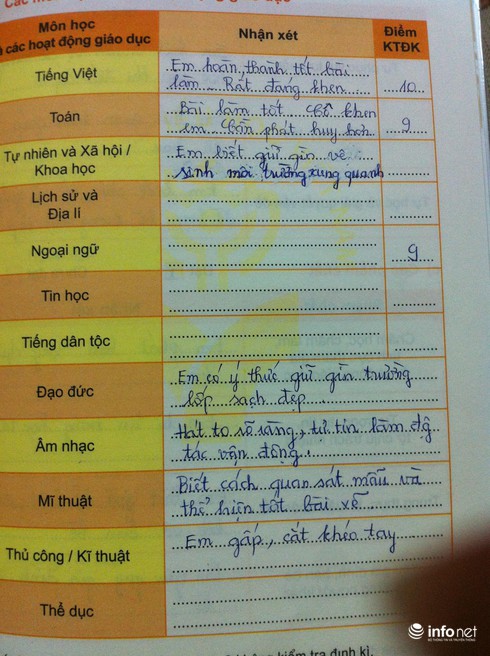 Môn học
các hoạt động giáo dục
Nhận xét
Điểm
KTĐK
Tiếng Việt
Em hoàn thành tốt bài
làm. Rất đáng khen
10
Toán
Bài làm tốt. Cô khen
em. Cần phát huy hơn
9
Tự nhiên và Xã hội /
Khoa học
Em biết giữ gìn vệ
sinh môi trường xung quanh
Lịch sử và
Địa lí
Ngoại ngữ
9
Tin học
Tiếng dân tộc
Đạo đức
Em có ý thức giữ gìn trường
lớp sạch đẹp
Âm nhạc
Hát to rõ ràng, tự tin làm độ
tác vận động.
Mĩ thuật
Biết cách quan sát mẫu và
thể hiện tốt bài vẽ.
Thủ công / Kĩ thuật
Em gấp, cắt khéo tay
Thể dục
infonet
kiểm tra định kì.